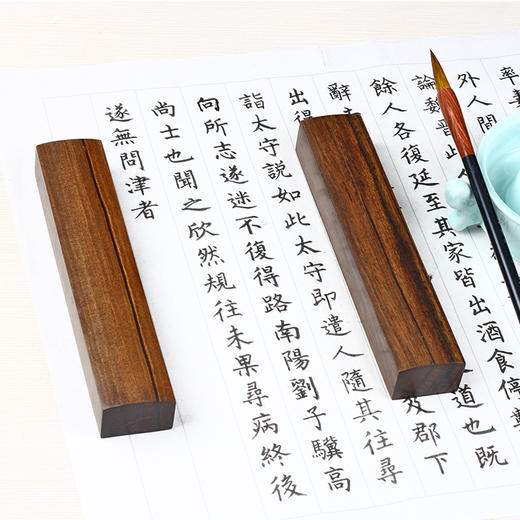 率妻
外人間
論魏晉此
餘人各復延至其家皆出酒食停數
辭道也既
出得及郡下
詣太守説如此太守即遣人隨其往尋
向所志遂迷不復得路南陽劉子驥高
尚士也聞之欣然規往未果尋病終後
遂無問津者